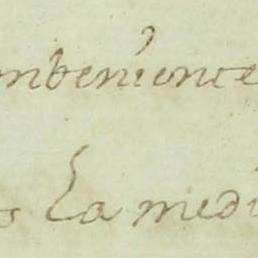 ombenience
s La medi